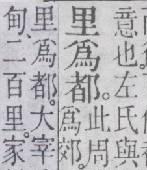 意也。左氏與
里爲都。
此周
爲郊。
里爲都。大宰
甸。二百里。家